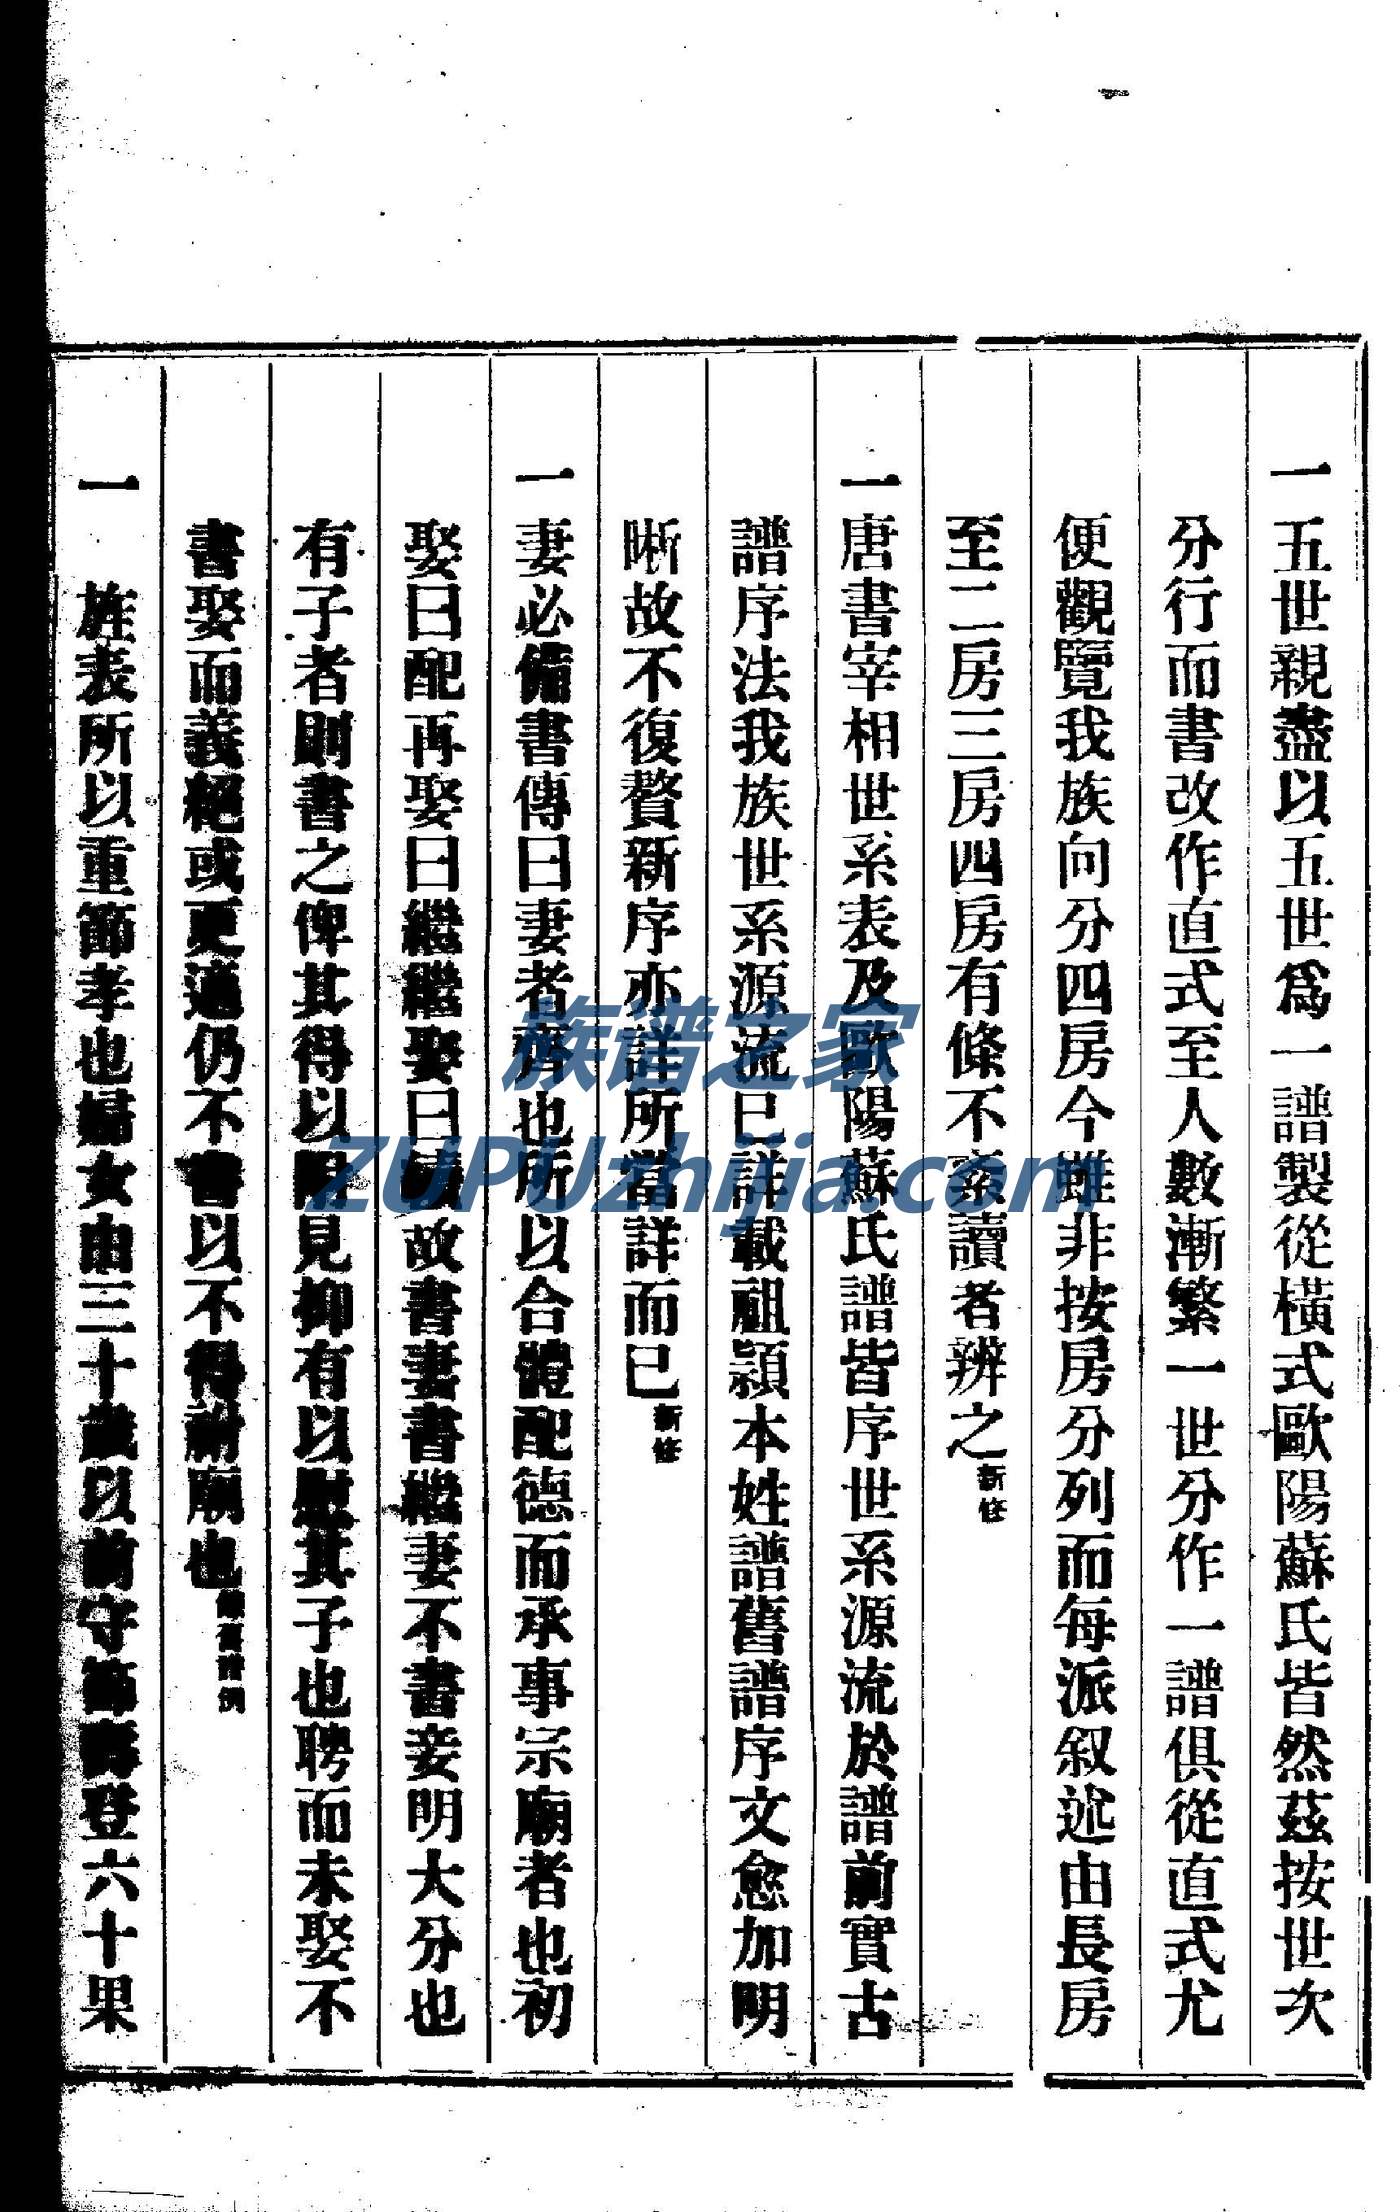 一五世親盡以五世爲一譜製從橫式歐陽蘇氏皆然茲按世次
分行而書改作直式至人數漸繁一世分作一譜俱從直式尤
便觀覽我族向分四房今雖非按房分列而每派叙述由長房
至二房三房四房有條不紊讀者辨之新修
一唐書宰相世系表及歐陽蘇氏譜皆序世系源流於譜前實古
譜序法我族世系源流已詳載祖潁本姓譜舊譜序文愈加明
晰故不復贅新序亦詳所當詳而已新修
一妻必備書傳曰妻者齊也所以合體配德而承事宗廟者也初
娶曰配再娶曰繼繼娶曰續故書妻書繼妻不書妾明大分也
有子者則書之俾其得以附見抑有以慰其子也聘而未娶不
書娶而義絕或更適仍不書以不得祔廟也
一旌表所以重節孝也婦女由三十歲以前守節壽登六十果
族谱之家
ZUPUzhijia.com